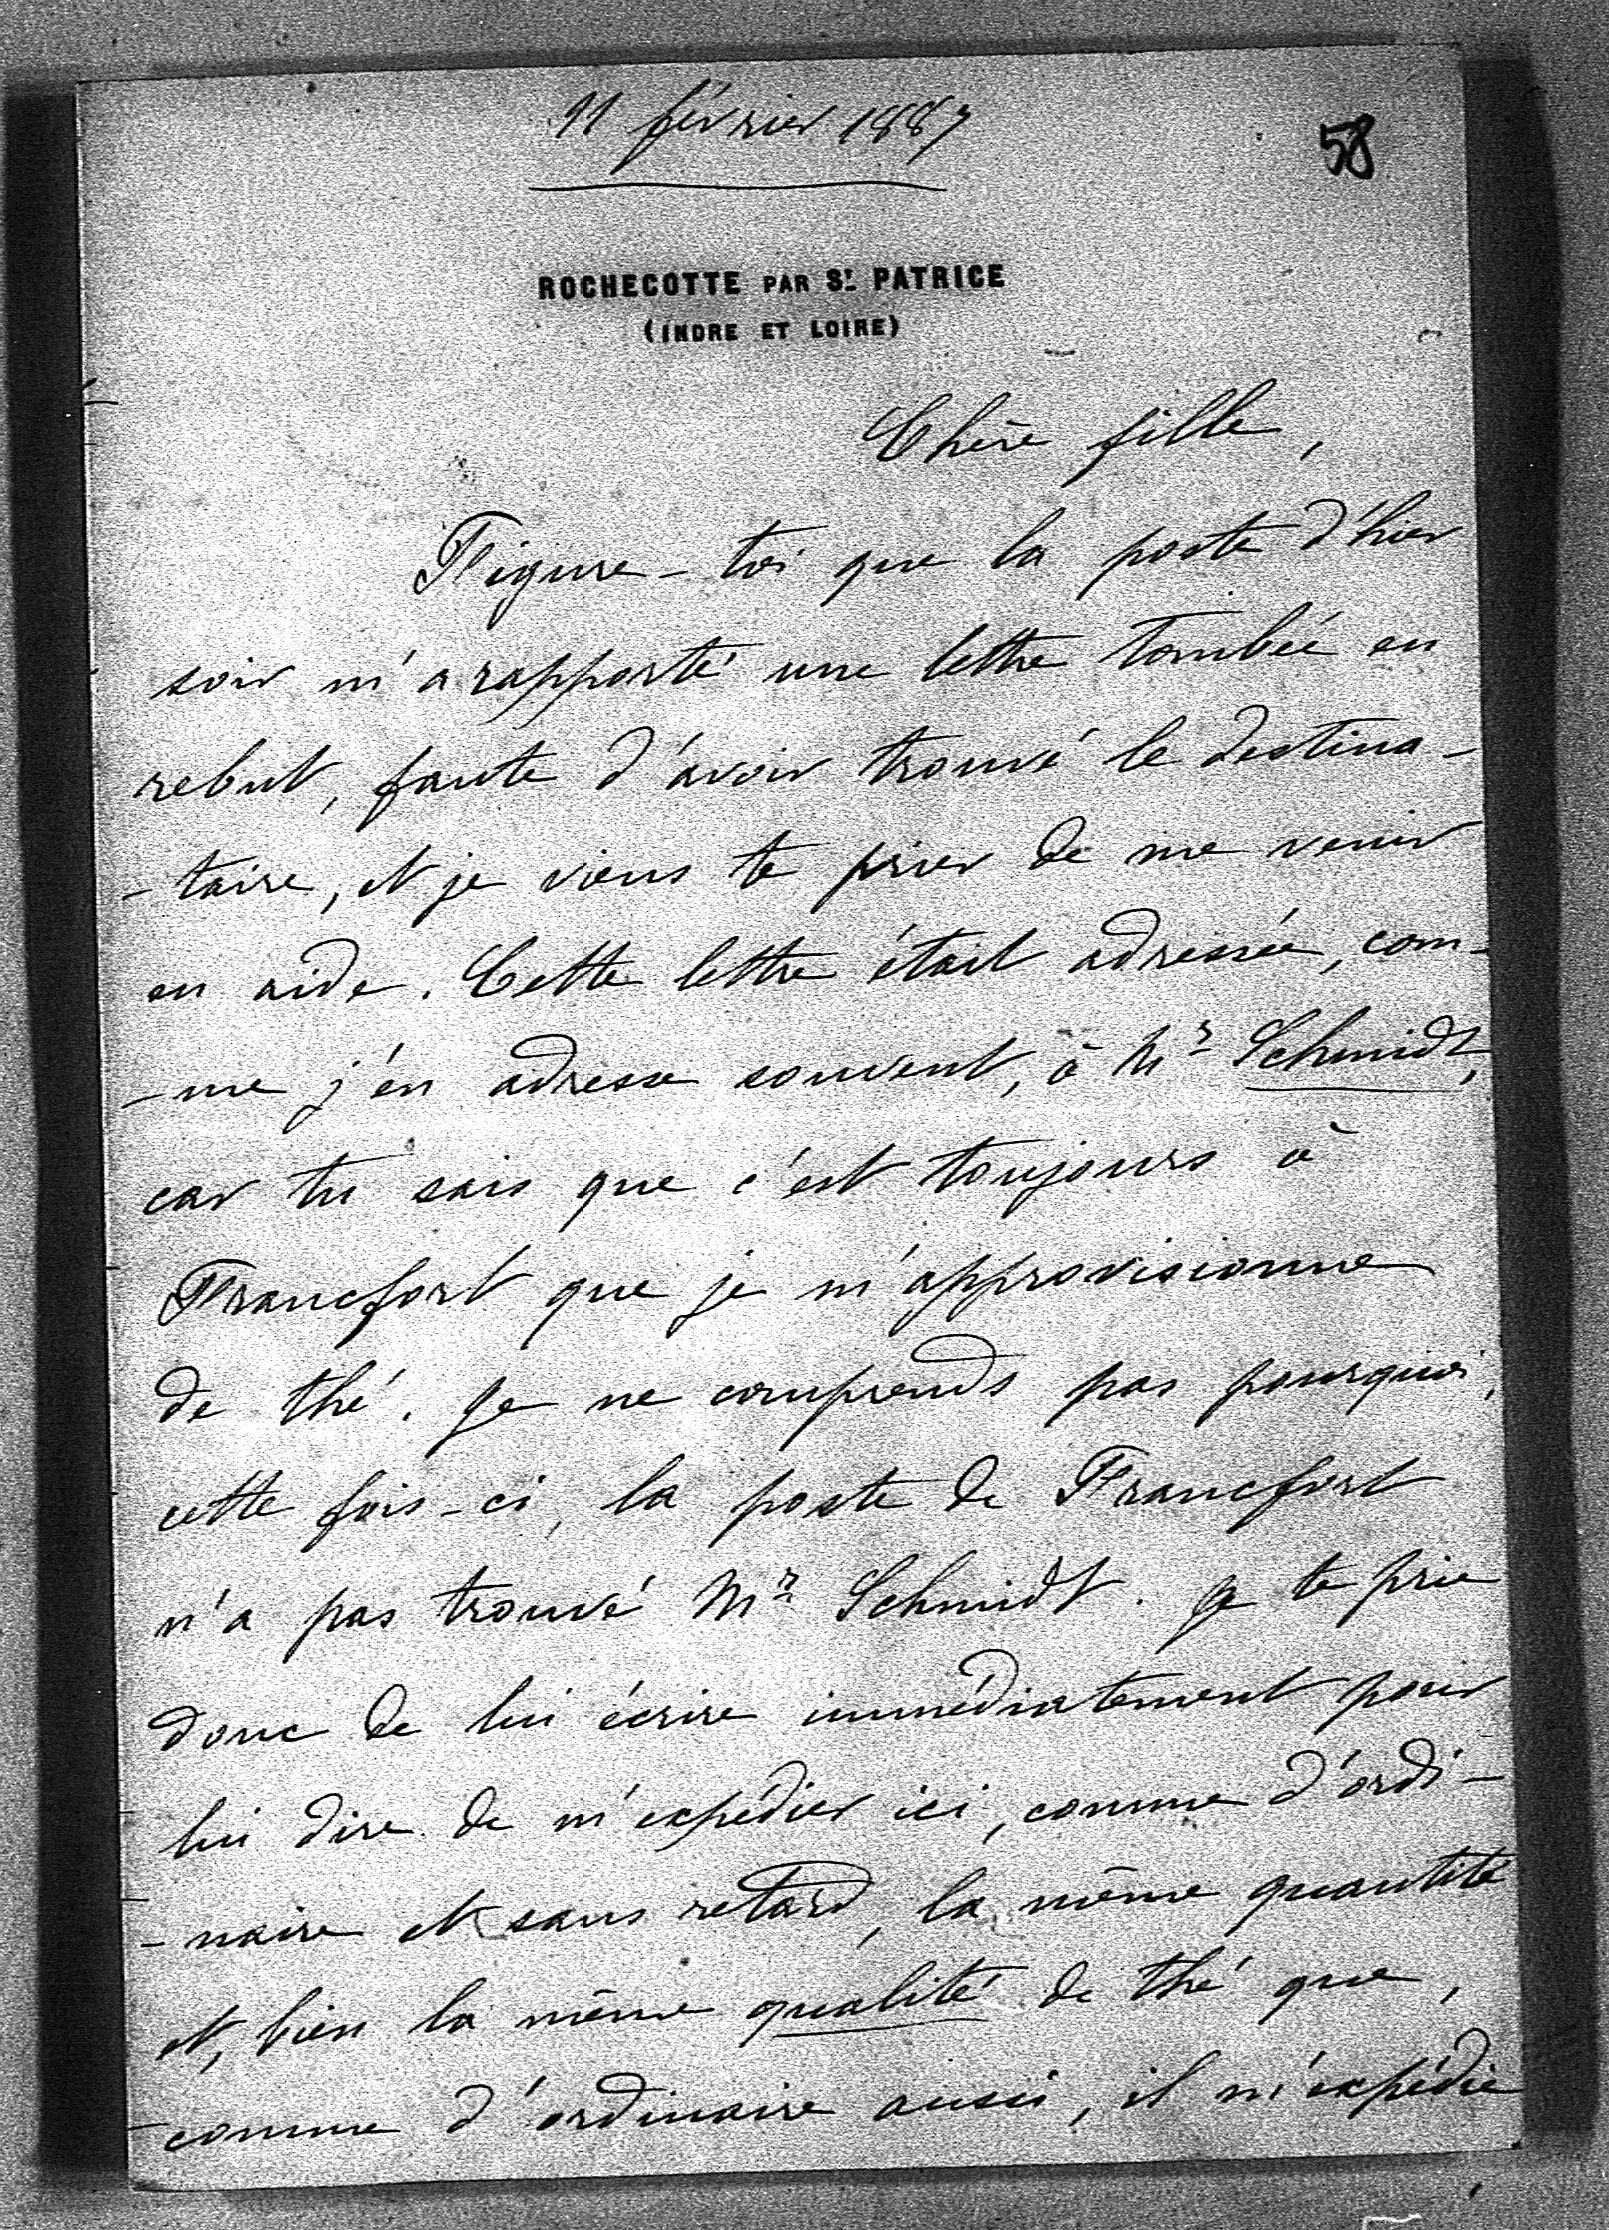 11 février 1887
58
ROCHECOTTE PAR St. PATRICE
(INDRE ET LOIRE)
Chère fille,
Figure-toi que la poste d'hier
soir m'a rapporté une lettre tombée en
rebut, faute d'avoir trouvé le destina-
-taire, et je viens te prier de me venir
en aide. Cette lettre était adressée, com-
-me j'en adresse souvent, à Mr Schmidt,
car tu sais que c'est toujours à
Francfort que je m'approvisionne
de thé. Je ne comprends pas pourquoi,
cette fois-ci, la poste de Francfort
n'a pas trouvé Mr Schmidt. Je te prie
donc de lui écrire immédiatement pour
lui dire de m'expédier ici, comme d'ordi-
-naire et sans retard, la même quantité
et, bien la même qualité de thé que,
comme d'ordinaire aussi, il m'expédie